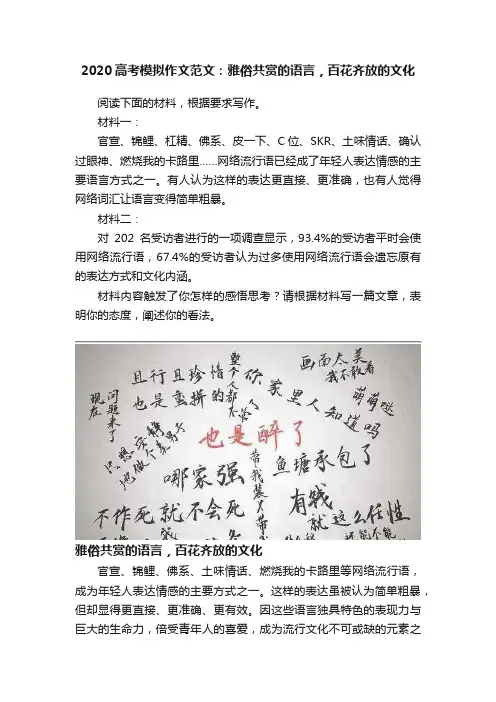 2020高考模拟作文范文：雅俗共赏的语言，百花齐放的文化
阅读下面的材料，根据要求写作。
材料一：
官宣、锦鲤、杠精、佛系、皮一下、C位、SKR、土味情话、确认
过眼神、燃烧我的卡路里……网络流行语已经成了年轻人表达情感的主
要语言方式之一。有人认为这样的表达更直接、更准确，也有人觉得
网络词汇让语言变得简单粗暴。
材料二：
对 202 名受访者进行的一项调查显示，93.4%的受访者平时会使
用网络流行语，67.4%的受访者认为过多使用网络流行语会遗忘原有
的表达方式和文化内涵。
材料内容触发了你怎样的感悟思考？请根据材料写一篇文章，表
明你的态度，阐述你的看法。
现在
问题来了
且行且珍惜
也是蛮拼的
整个人都不好了
你家里人知道吗
画面太美
我不敢看
萌萌哒
只想安静
地做个美男子
也是醉了
哪家强
鱼塘承包了
不作死就不会死
带我装
有钱
就这么任性
雅俗共赏的语言，百花齐放的文化
官宣、锦鲤、佛系、土味情话、燃烧我的卡路里等网络流行语，
成为年轻人表达情感的主要方式之一。这样的表达虽被认为简单粗暴，
但却显得更直接、更准确、更有效。因这些语言独具特色的表现力与
巨大的生命力，倍受青年人的喜爱，成为流行文化不可或缺的元素之